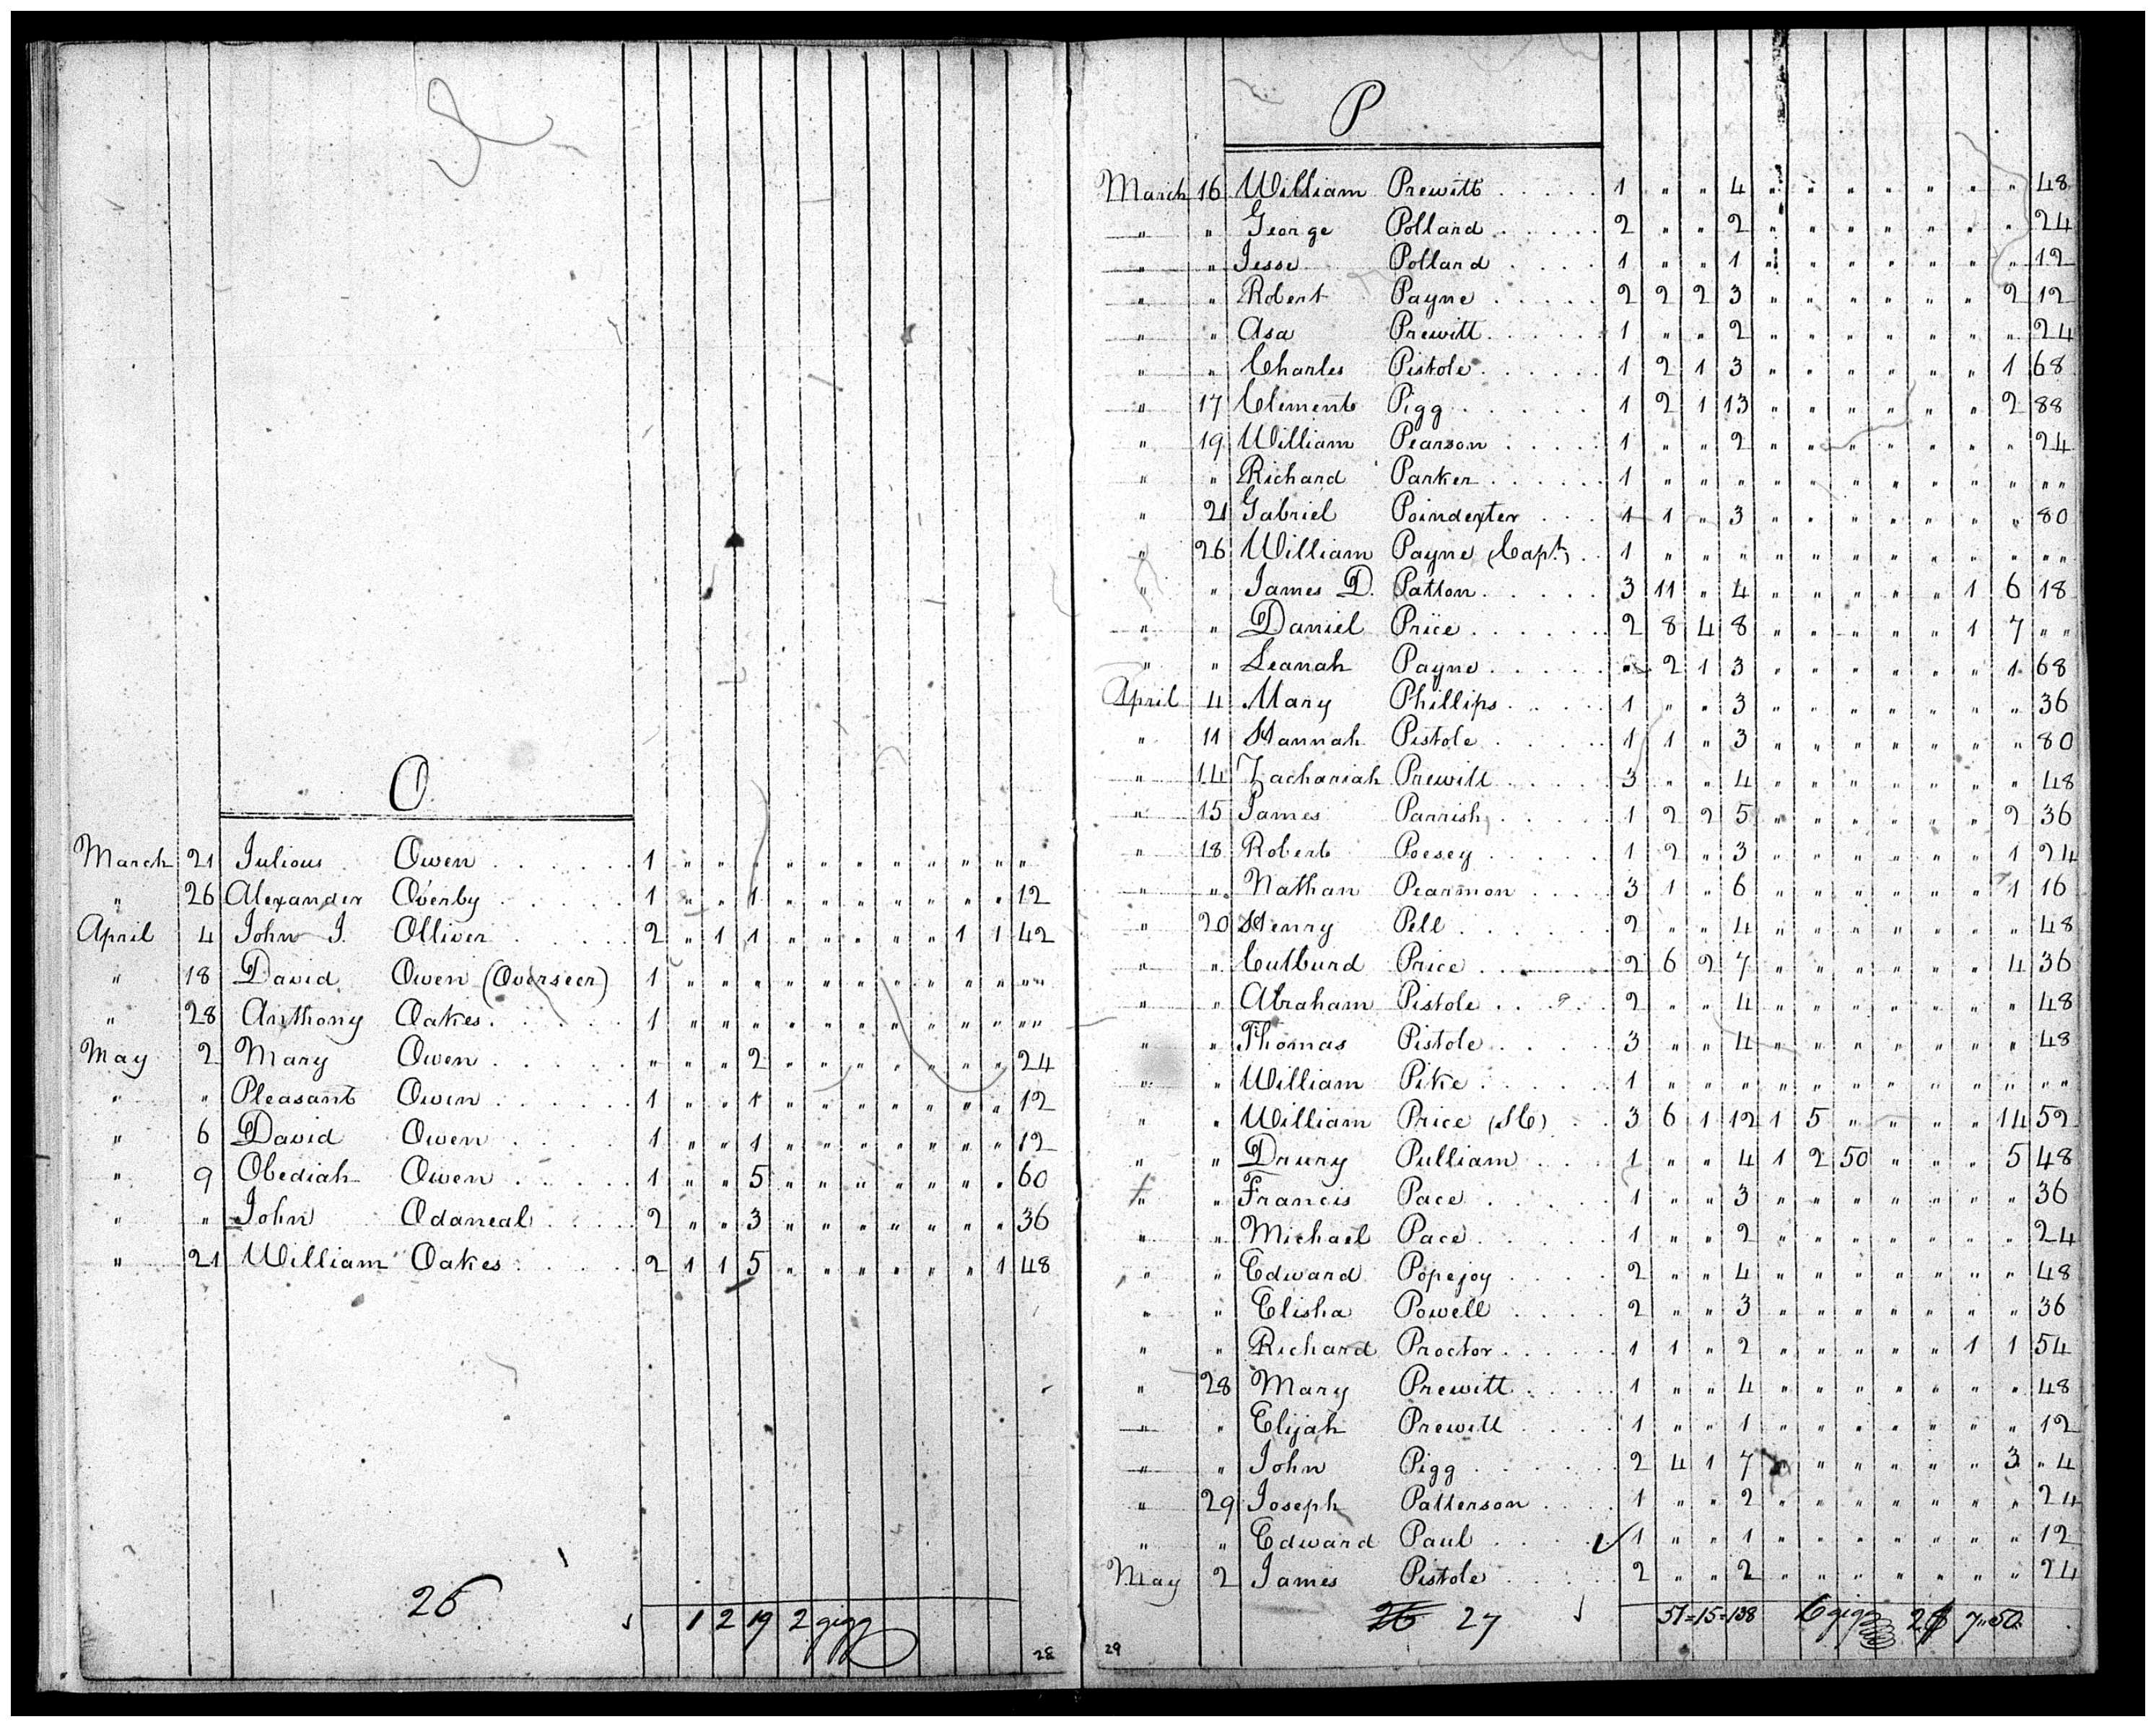 O
March 21 Julious Owen . . . . . 1 " " " " " " " " " " "
" 26 Alexander Overby . . . . . 1 " " 1 " " " " " " " 12
April 4 John J. Olliver . . . . 2 " 1 1 " " " " " 1 1 42
" 18 David Owen (Overseer) 1 " " " " " " " " " " " "
" 28 Anthony Oakes . . . . 1 " " " " " " " " " " " "
May 2 Mary Owen . . . . . " " " 2 " " " " " " " 24
" " Pleasant Owen . . . . . 1 " " 1 " " " " " " " 12
" 6 David Owen . . . . 1 " " 1 " " " " " " " 12
" 9 Obediah Owen . . . . . 1 " " 5 " " " " " " " 60
" " John Odaneal . . . . 2 " " 3 " " " " " " " 36
" 21 William Oakes . . . . . 2 1 1 5 " " " " " " 1 48
26
1 2 19 2 gigg
28
P
March 16 William Prewitt . . . . . 1 " " 4 " " " " " " " 48
" " George Polland . . . . . 2 " " 2 " " " " " " " 24
" " Jesse Polland . . . . 1 " " 1 " " " " " " " 12
" " Robert Payne . . . . . 2 2 2 3 " " " " " " 2 12
" " Asa Prewitt . . . . . 1 " " 2 " " " " " " " 24
" " Charles Pistole . . . . . 1 2 1 3 " " " " " " 1 68
" 17 Clement Pigg . . . . . 1 2 1 13 " " " " " " 2 88
" 19 William Pearson . . . . 1 " " 2 " " " " " " " 24
" " Richard Parker . . . . . 1 " " " " " " " " " " " "
" 21 Gabriel Poindexter . . . 1 1 " 3 " " " " " " " 80
" 26 William Payne (Capt) . . 1 " " " " " " " " " " " "
" " James D. Patton . . . . . 3 11 " 4 " " " " " 1 6 18
" " Daniel Price . . . . . . 2 8 4 8 " " " " " 1 7 " "
" " Leanah Payne . . . . . " 2 1 3 " " " " " " 1 68
April 4 Mary Phillips . . . . 1 " " 3 " " " " " " " 36
" 11 Hannah Pistole . . . . 1 1 " 3 " " " " " " " 80
" 14 Zachariah Prewitt . . . . 3 " " 4 " " " " " " " 48
" 15 James Parrish . . . . . 1 2 2 5 " " " " " " 2 36
" 18 Robert Poesey . . . . . 1 2 " 3 " " " " " " 1 24
" " Nathan Pearmon . . . . 3 1 " 6 " " " " " " 1 16
" 20 Henry Pell . . . . . . 2 " " 4 " " " " " " " 48
" " Cutburd Price . . . . . 2 6 2 7 " " " " " " 4 36
" " Abraham Pistole . . . . 2 " " 4 " " " " " " " 48
" " Thomas Pistole . . . . 3 " " 4 " " " " " " " 48
" " William Pike . . . . . 1 " " " " " " " " " " " "
" " William Price 3 6 1 12 1 5 " " " " 14 52
" " Drury Pulliam . . . 1 " " 4 1 2 50 " " " 5 48
" " Francis Pace . . . . 1 " " 3 " " " " " " " 36
" " Michael Pace . . . . . 1 " " 2 " " " " " " " 24
" " Edward Popejoy . . . . 2 " " 4 " " " " " " " 48
" " Elisha Powell . . . . 2 " " 3 " " " " " " " 36
" " Richard Proctor . . . . . 1 1 " 2 " " " " " 1 1 54
" 28 Mary Prewitt . . . . 1 " " 4 " " " " " " " 48
" " Elijah Prewitt . . . . 1 " " 1 " " " " " " " 12
" " John Pigg . . . . . . 2 4 1 7 " " " " " " 3 " 4
" 29 Joseph Patterson . . . . 1 " " 2 " " " " " " " 24
" " Edward Paul . . . . ✓ 1 " " 1 " " " " " " " 12
May 2 James Pistole . . . . . 2 " " 2 " " " " " " " 24
26 27
51=15=138 6 gigg 7"50
29